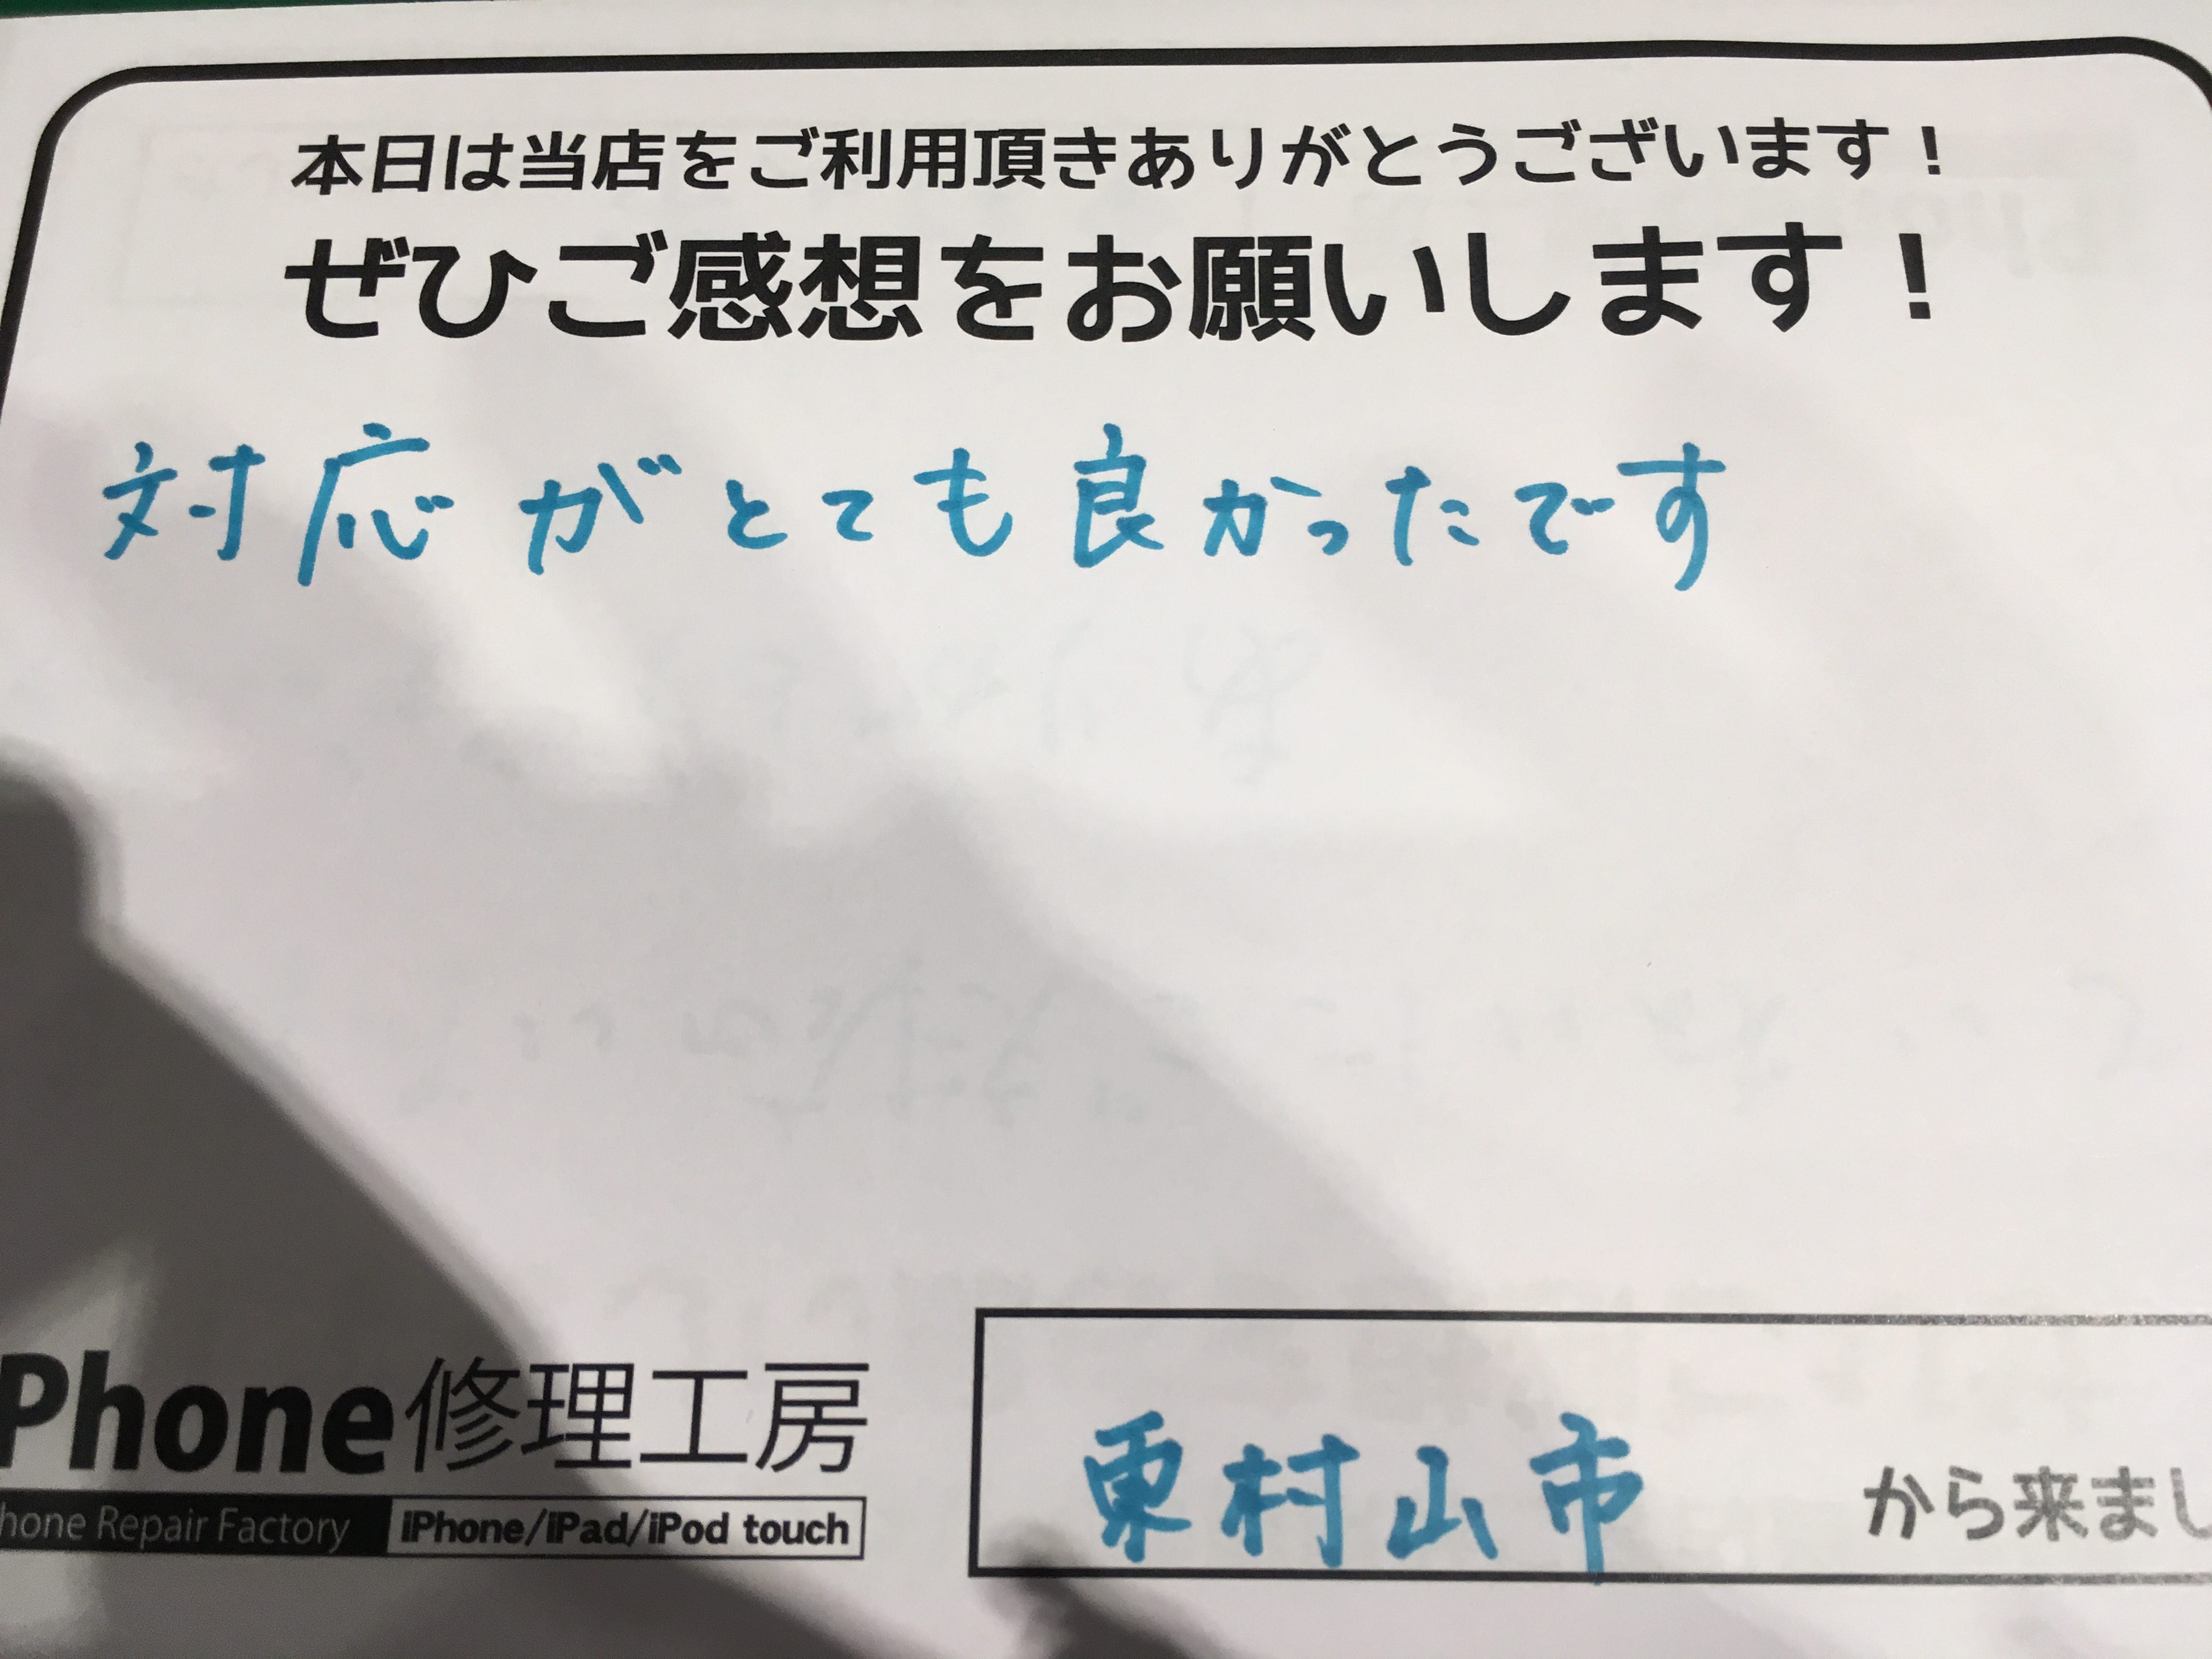 本日は当店をご利用頂きありがとうございます！
ぜひご感想をお願いします！
対応がとても良かったです
Phone修理工房
hone Repair Factory iPhone/iPad/iPod touch
東村山市 から来まし